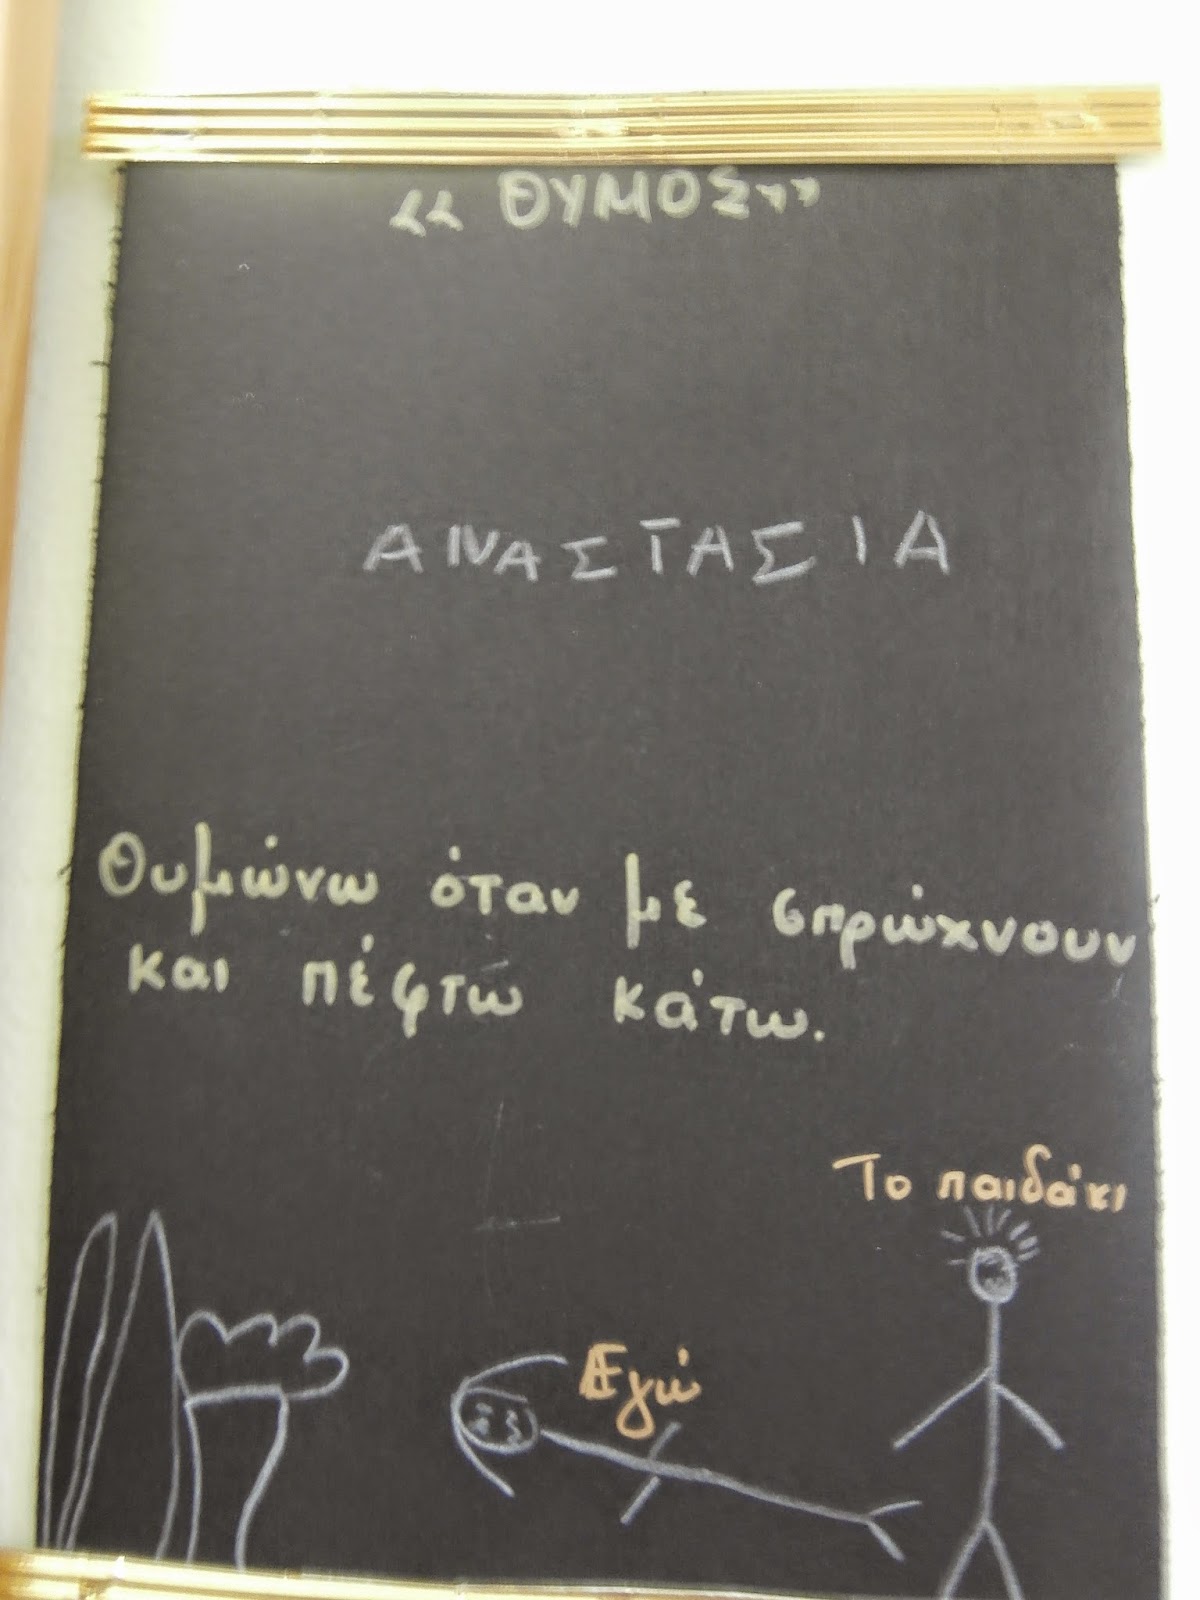 «ΘΥΜΟΣ»
ΑΝΑΣΤΑΣΙΑ
Θυμώνω όταν με σπρώχνουν
και πέφτω κάτω.
Το παιδάκι
Εγώ